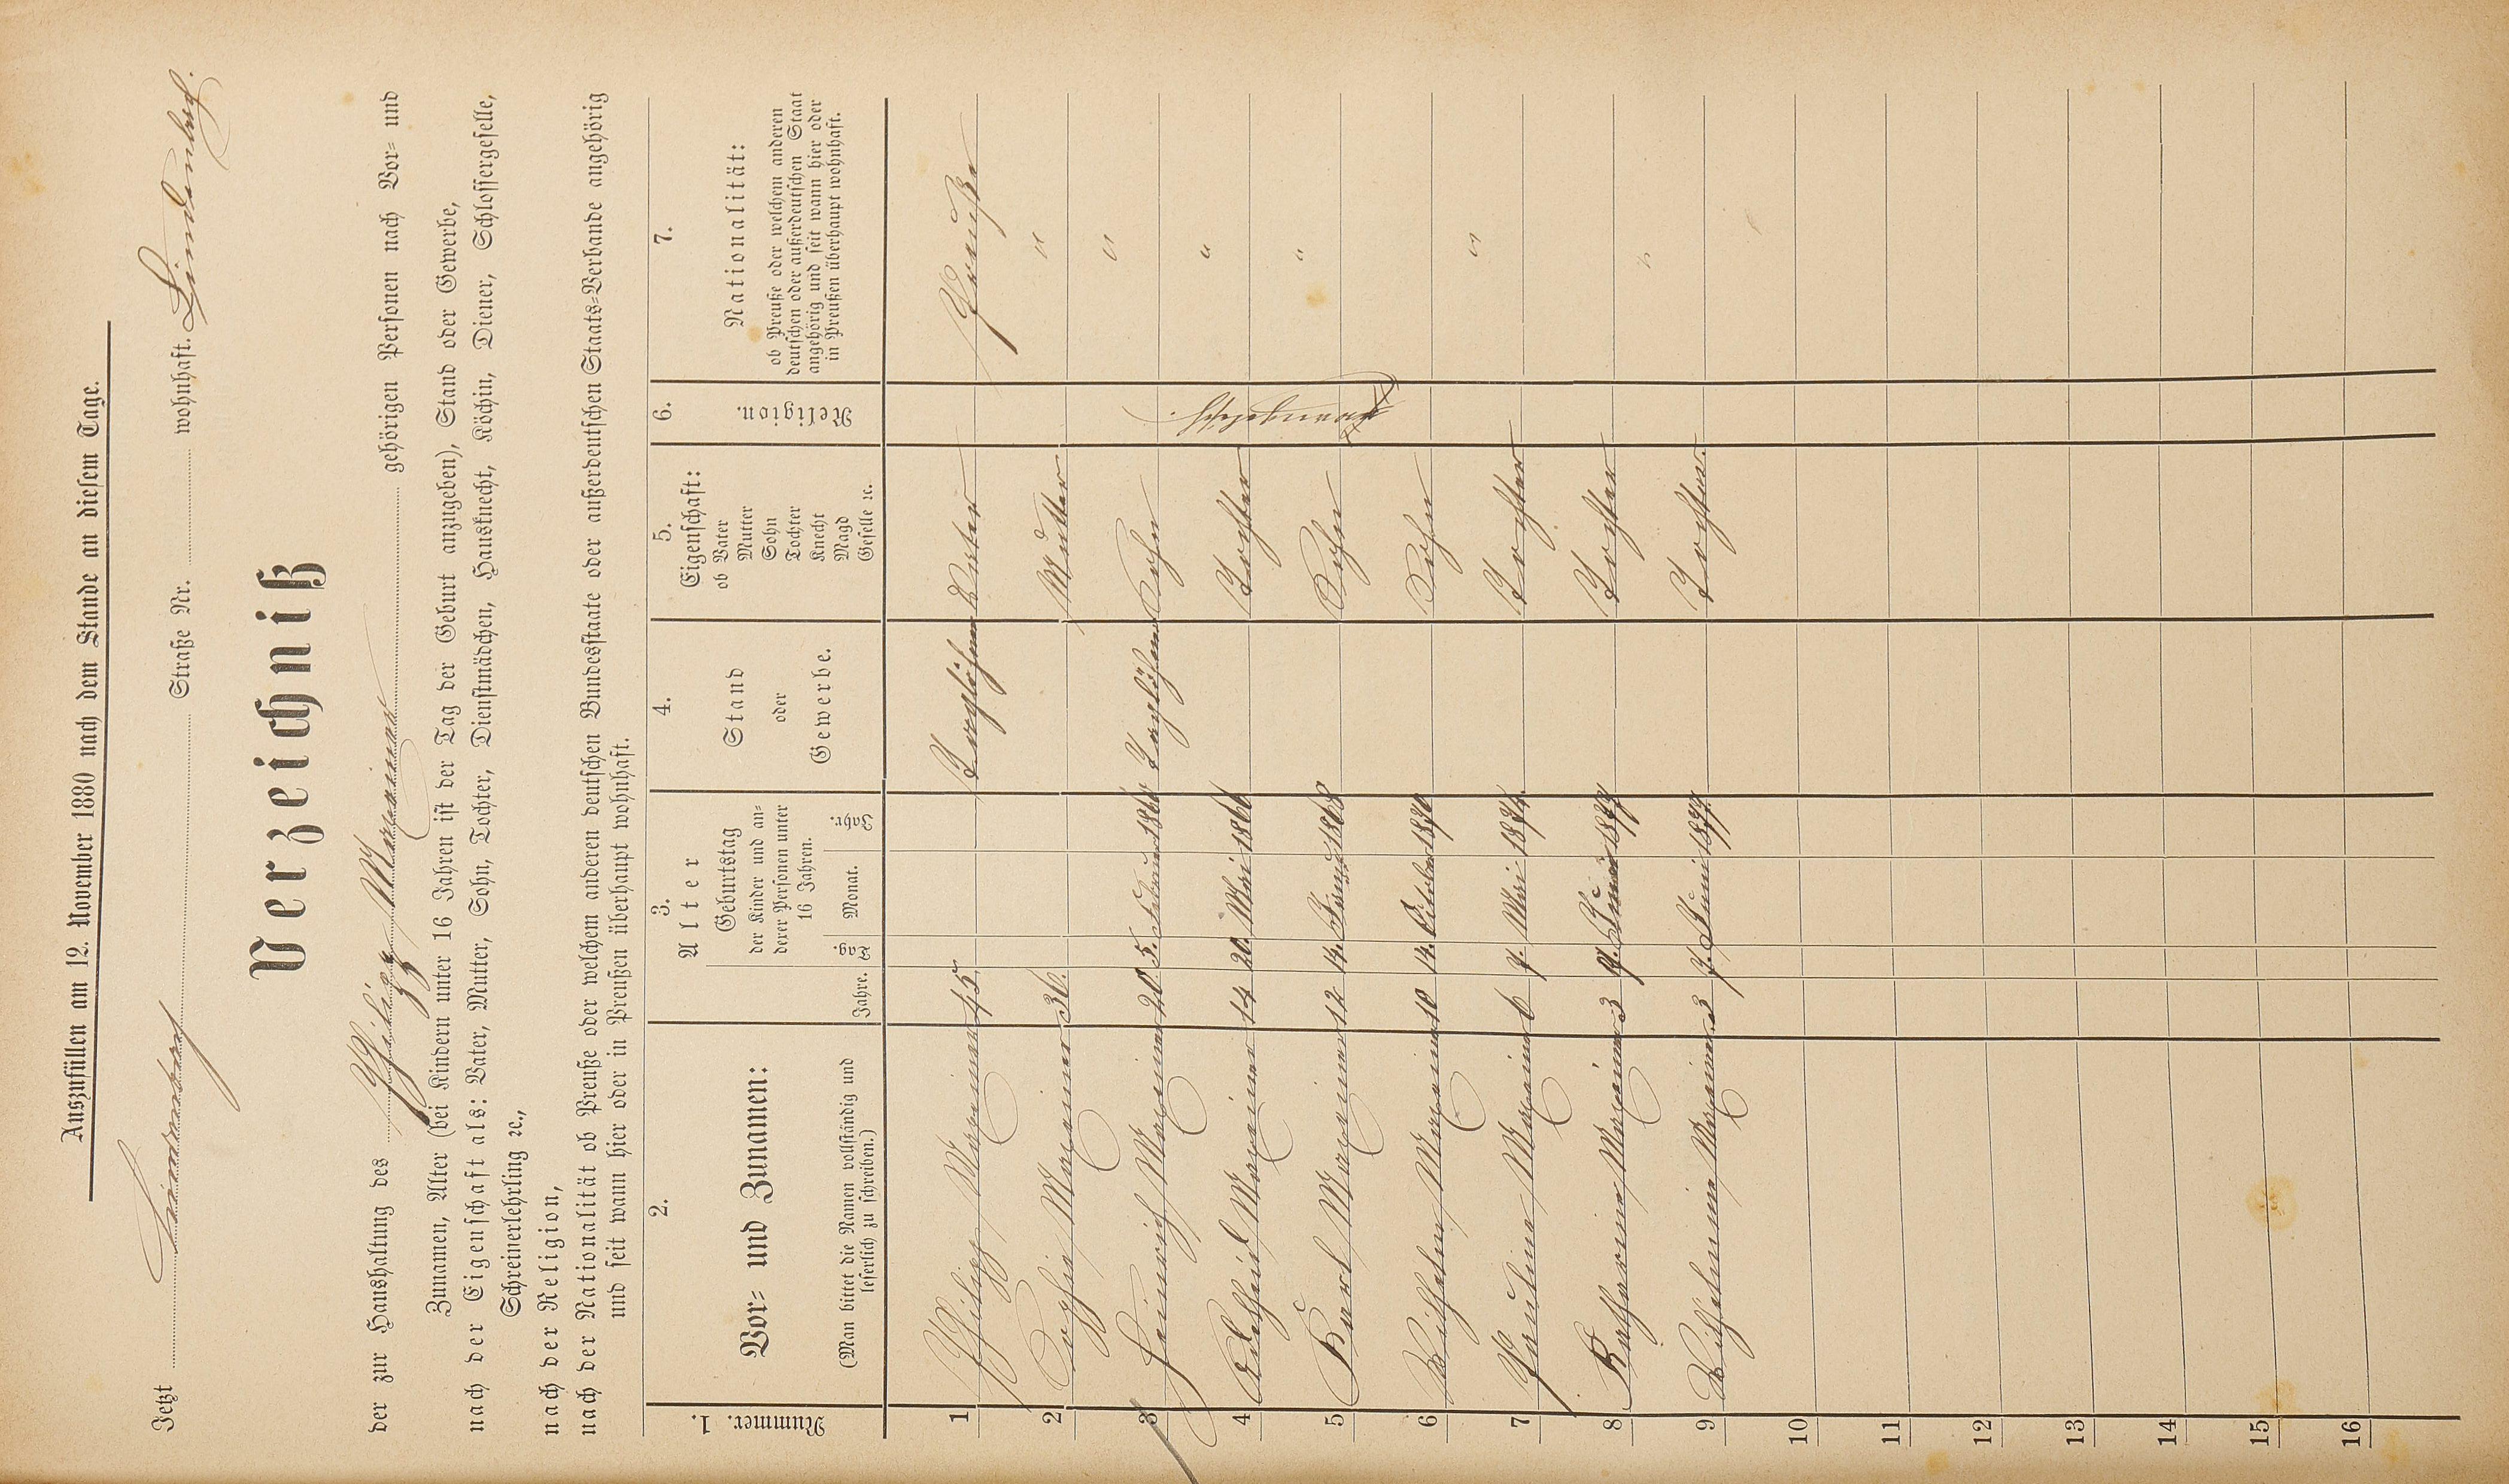 Auszufüllen am 12. November 1880 nach dem Stande an diesem Tage.
Jetzt Straße Nr. wohnhaft.
Verzeichniß
der zur Haushaltung des Philipp gehörigen Personen nach Vor= und
Zunamen, Alter (bei Kindern unter 16 Jahren ist der Tag der Geburt anzugeben), Stand oder Gewerbe,
nach der Eigenschaft als: Vater, Mutter, Sohn, Tochter, Dienstmädchen, Hausknecht, Köchin, Diener, Schlossergeselle,
Schreinerlehrling ꝛc.,
nach der Religion,
nach der Nationalität ob Preuße oder welchem anderen deutschen Bundesstaate oder außerdeutschen Staats=Verbande angehörig
und seit wann hier oder in Preußen überhaupt wohnhaft.
1.
Nummer.
2.
Vor= und Zunamen:
(Man bittet die Namen vollständig und
leserlich zu schreiben.)
3.
Alter
Jahre.
Geburtstag
der Kinder und an=
derer Personen unter
16 Jahren.
Tag. Monat. Jahr.
4.
Stand
oder
Gewerbe.
5.
Eigenschaft:
ob Vater
Mutter
Sohn
Tochter
Knecht
Magd
Geselle ꝛc.
6.
Religion.
7.
Nationalität:
ob Preuße oder welchem anderen
deutschen oder außerdeutschen Staat
angehörig und seit wann hier oder
in Preußen überhaupt wohnhaft.
1 Philipp 45 Taglöhner Vater Preuße
2 Sophie 36. Mutter "
3 Heinrich 20 5. Taglöhner Sohn "
4 Adelheid 14 20 Mai 1866 Tochter "
5 Karl 12 14. 1868 Sohn "
6 Wilhelm 10 14. Oktober 1870 Sohn
7 Pauline 6 7. Mai 1874. Tochter "
8 Katharine 3 7. Juni 1877 Tochter
9 Wilhelmine 3 7. Juni 1877. Tochter. "
evangelisch.
10
11
12
13
14
15
16